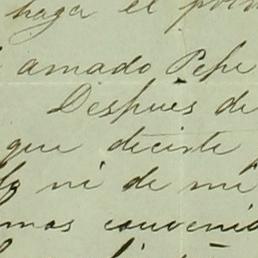 haga el
amado Pepe
Despues de
que decirte
ni de mi
mos convenid